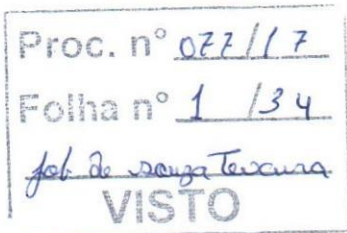 Proc. n° 077/17
Folha n° 1 /34
de souza Teixeira
VISTO